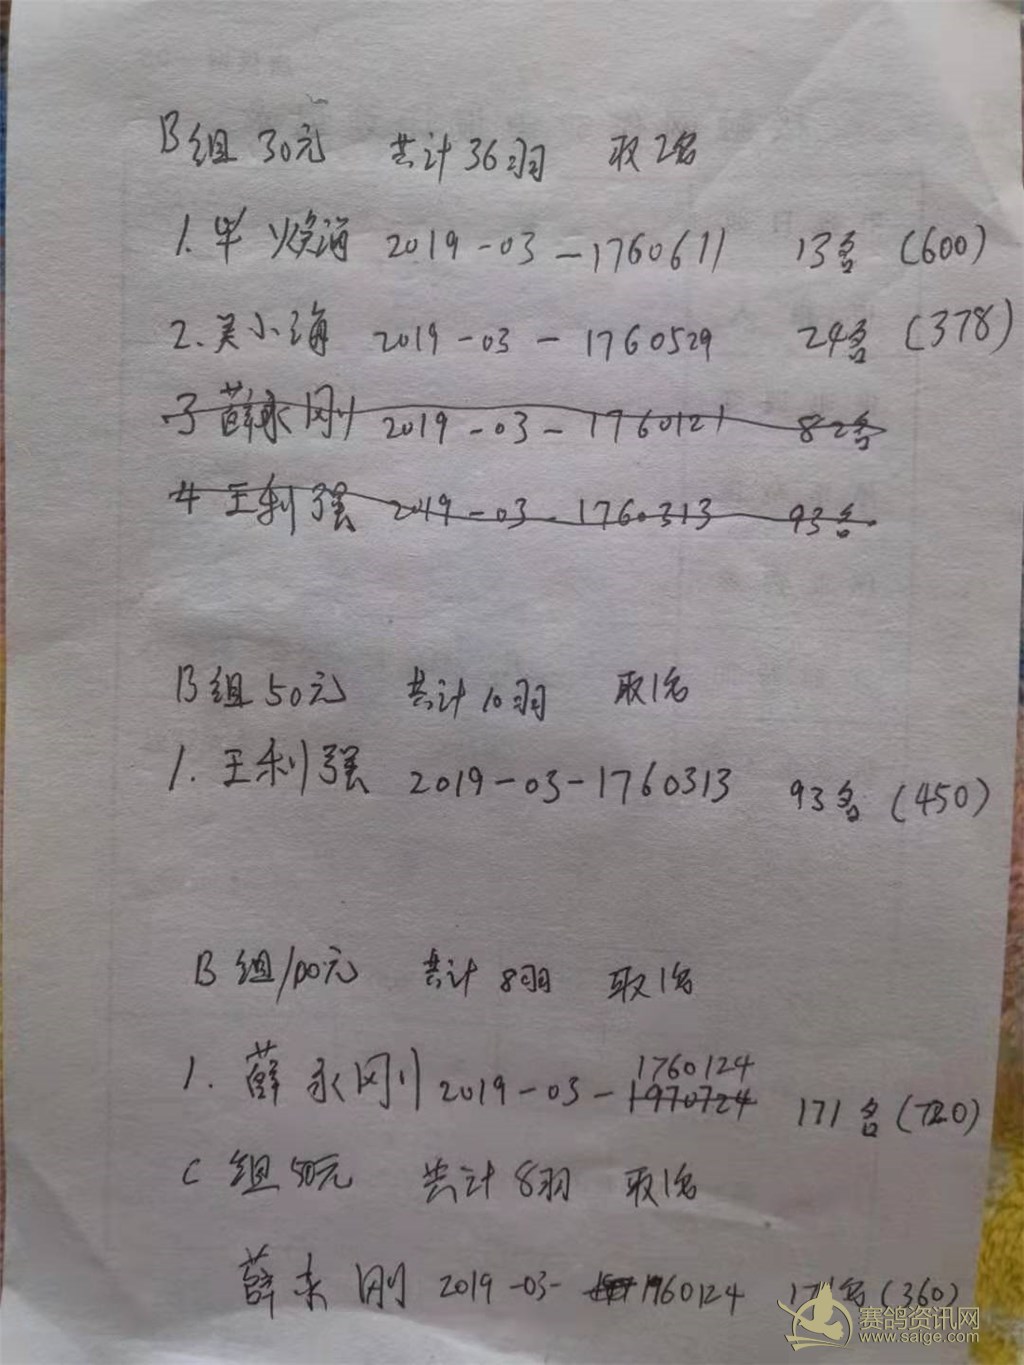 B组 30元 共计36羽 取2名
1. 牟焕海 2019-03-1760611 13名 (600)
2. 吴小海 2019-03-1760529 24名 (378)
3 薛永刚 2019-03-1760121 82名
4 王利强 2019-03-1760313 93名.
B组50元 共计10羽 取1名
1. 王利强 2019-03-1760313 93名 (450)
B组100元 共计8羽 取1名
1760124
1. 薛永刚 2019-03-1970724 171名 (720)
C组50元 共计8羽 取1名
薛永刚 2019-03- 1760124 171名 (360)
赛鸽资讯网
www.saige.com